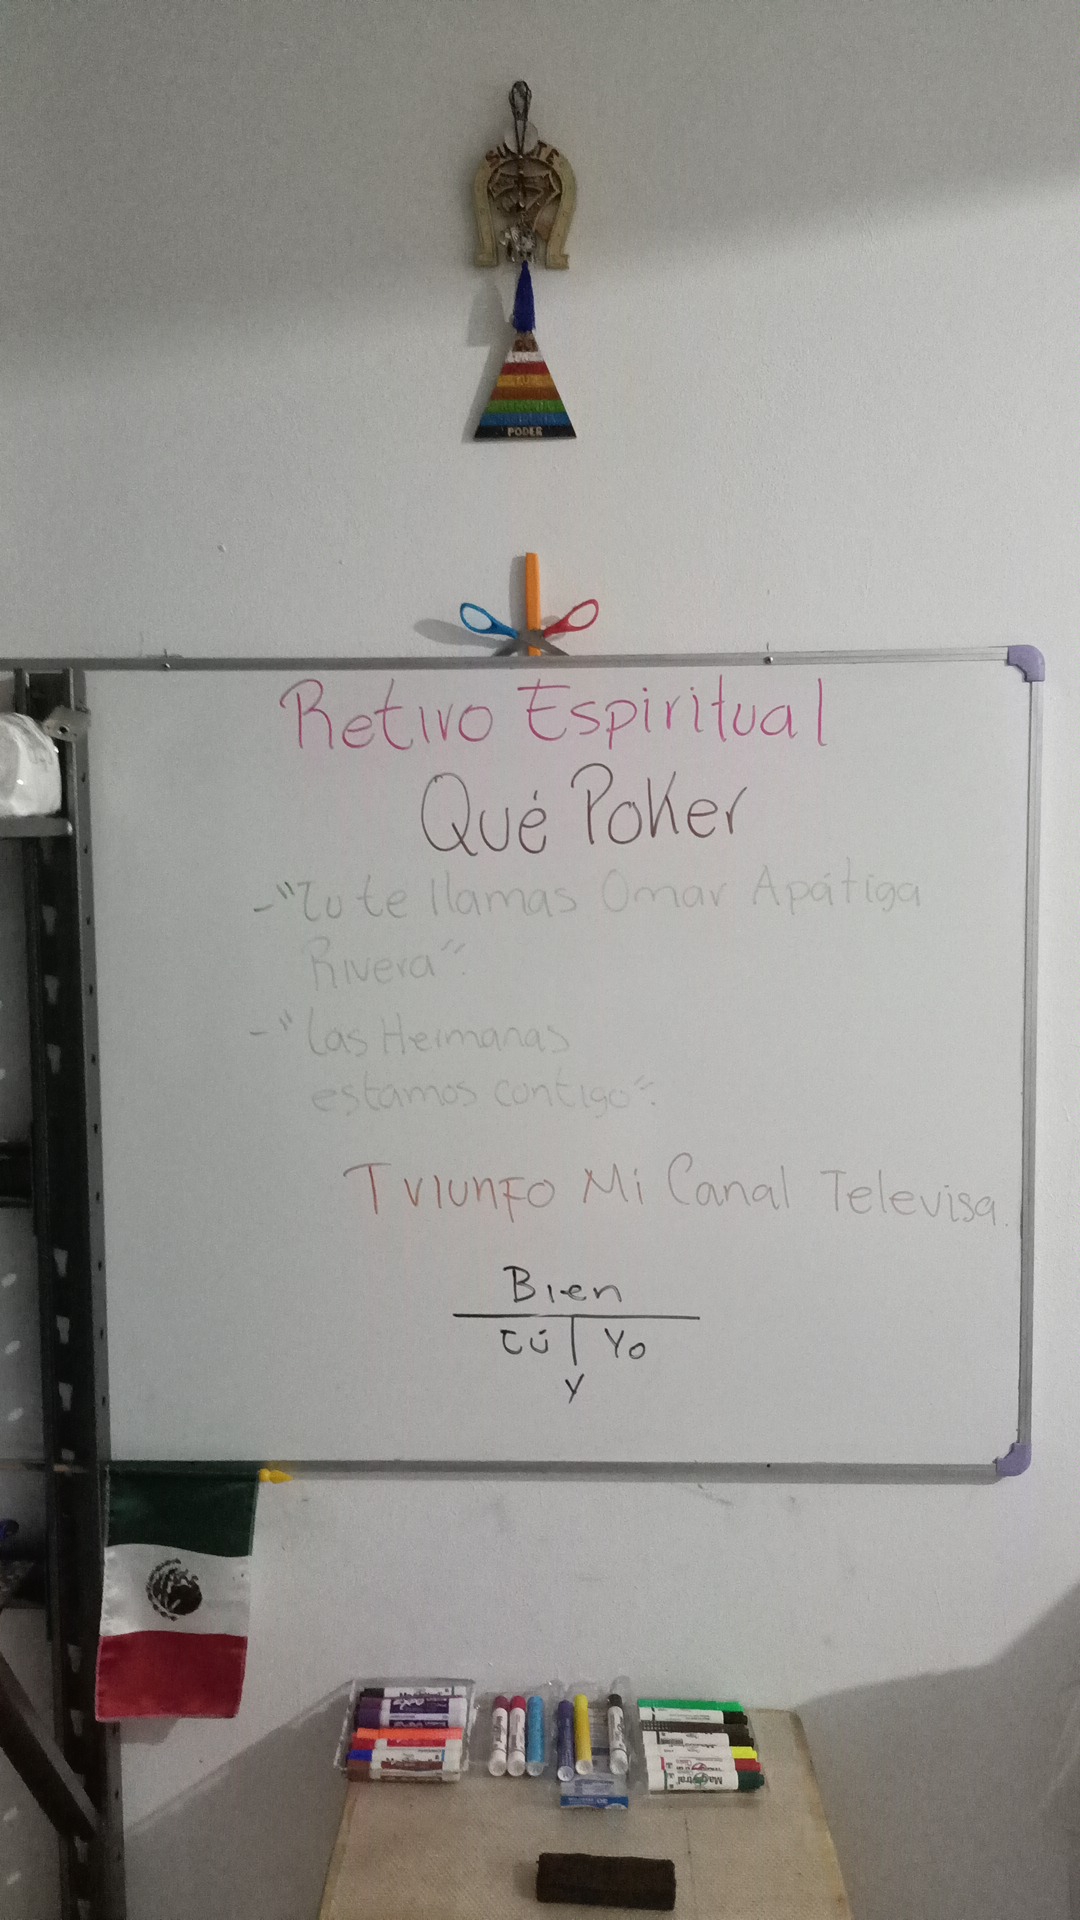 SUERTE
PODER
Retiro Espiritual
Qué Poker
-"Tu te llamas Omar Apátiga
Rivera".
-"Las Hermanas
estamos contigo".
TriunFo Mi Canal Televisa.
Bien
tú | Yo
y
Magistral